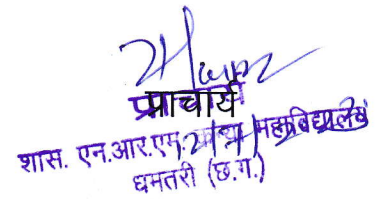 प्राचार्य
शास. एन.आर.एम. कन्या महाविद्यालय
धमतरी (छ.ग.)